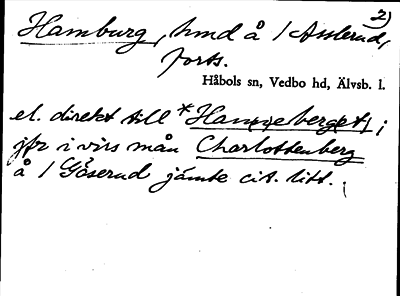 2)
Hamburg, hmd å 1 Asslerud,
forts.
Håbols sn, Vedbo hd, Älvsb. l.
el. direkt till *Han(ne)berget;
jfr i virs mån Charlottenberg
å 1 Gåserud jämte cit. litt.